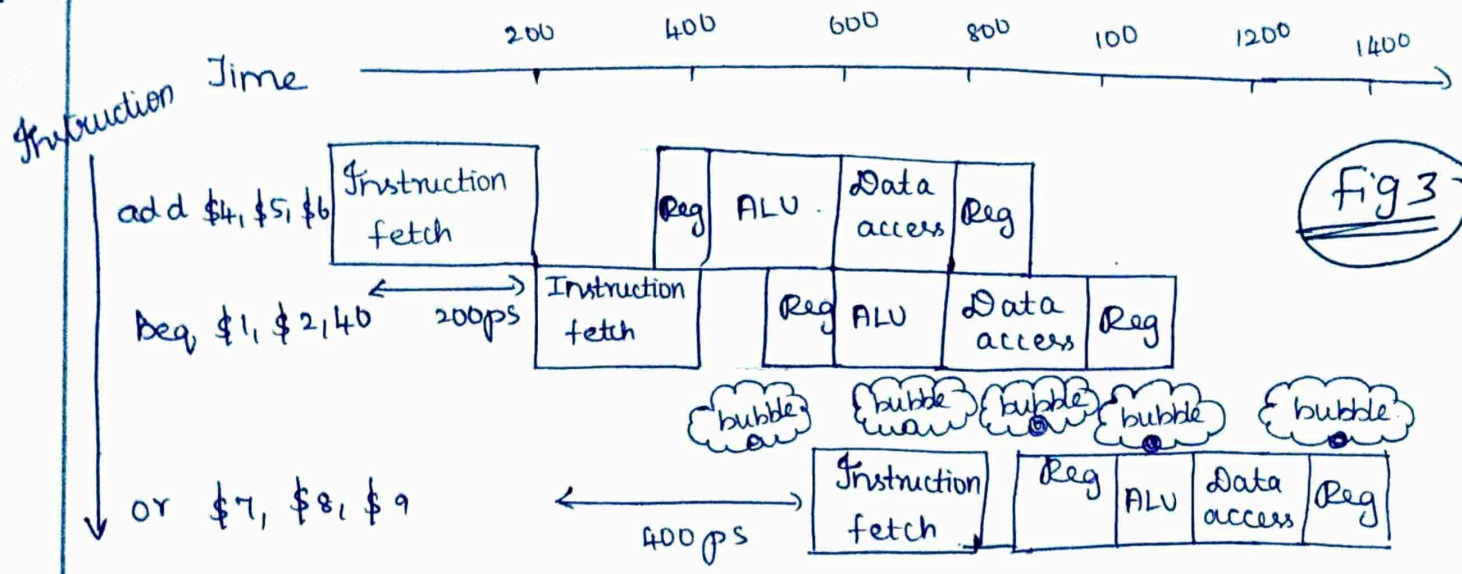 200 400 600 800 100 1200 1400
Time
Instruction
Fig 3
add $4, $5, $6 Instruction fetch Reg ALU Data access Reg
Beq $1, $2, 40 200ps Instruction fetch Reg ALU Data access Reg
bubble bubble bubble bubble bubble
or $7, $8, $9 400ps Instruction fetch Reg ALU Data access Reg